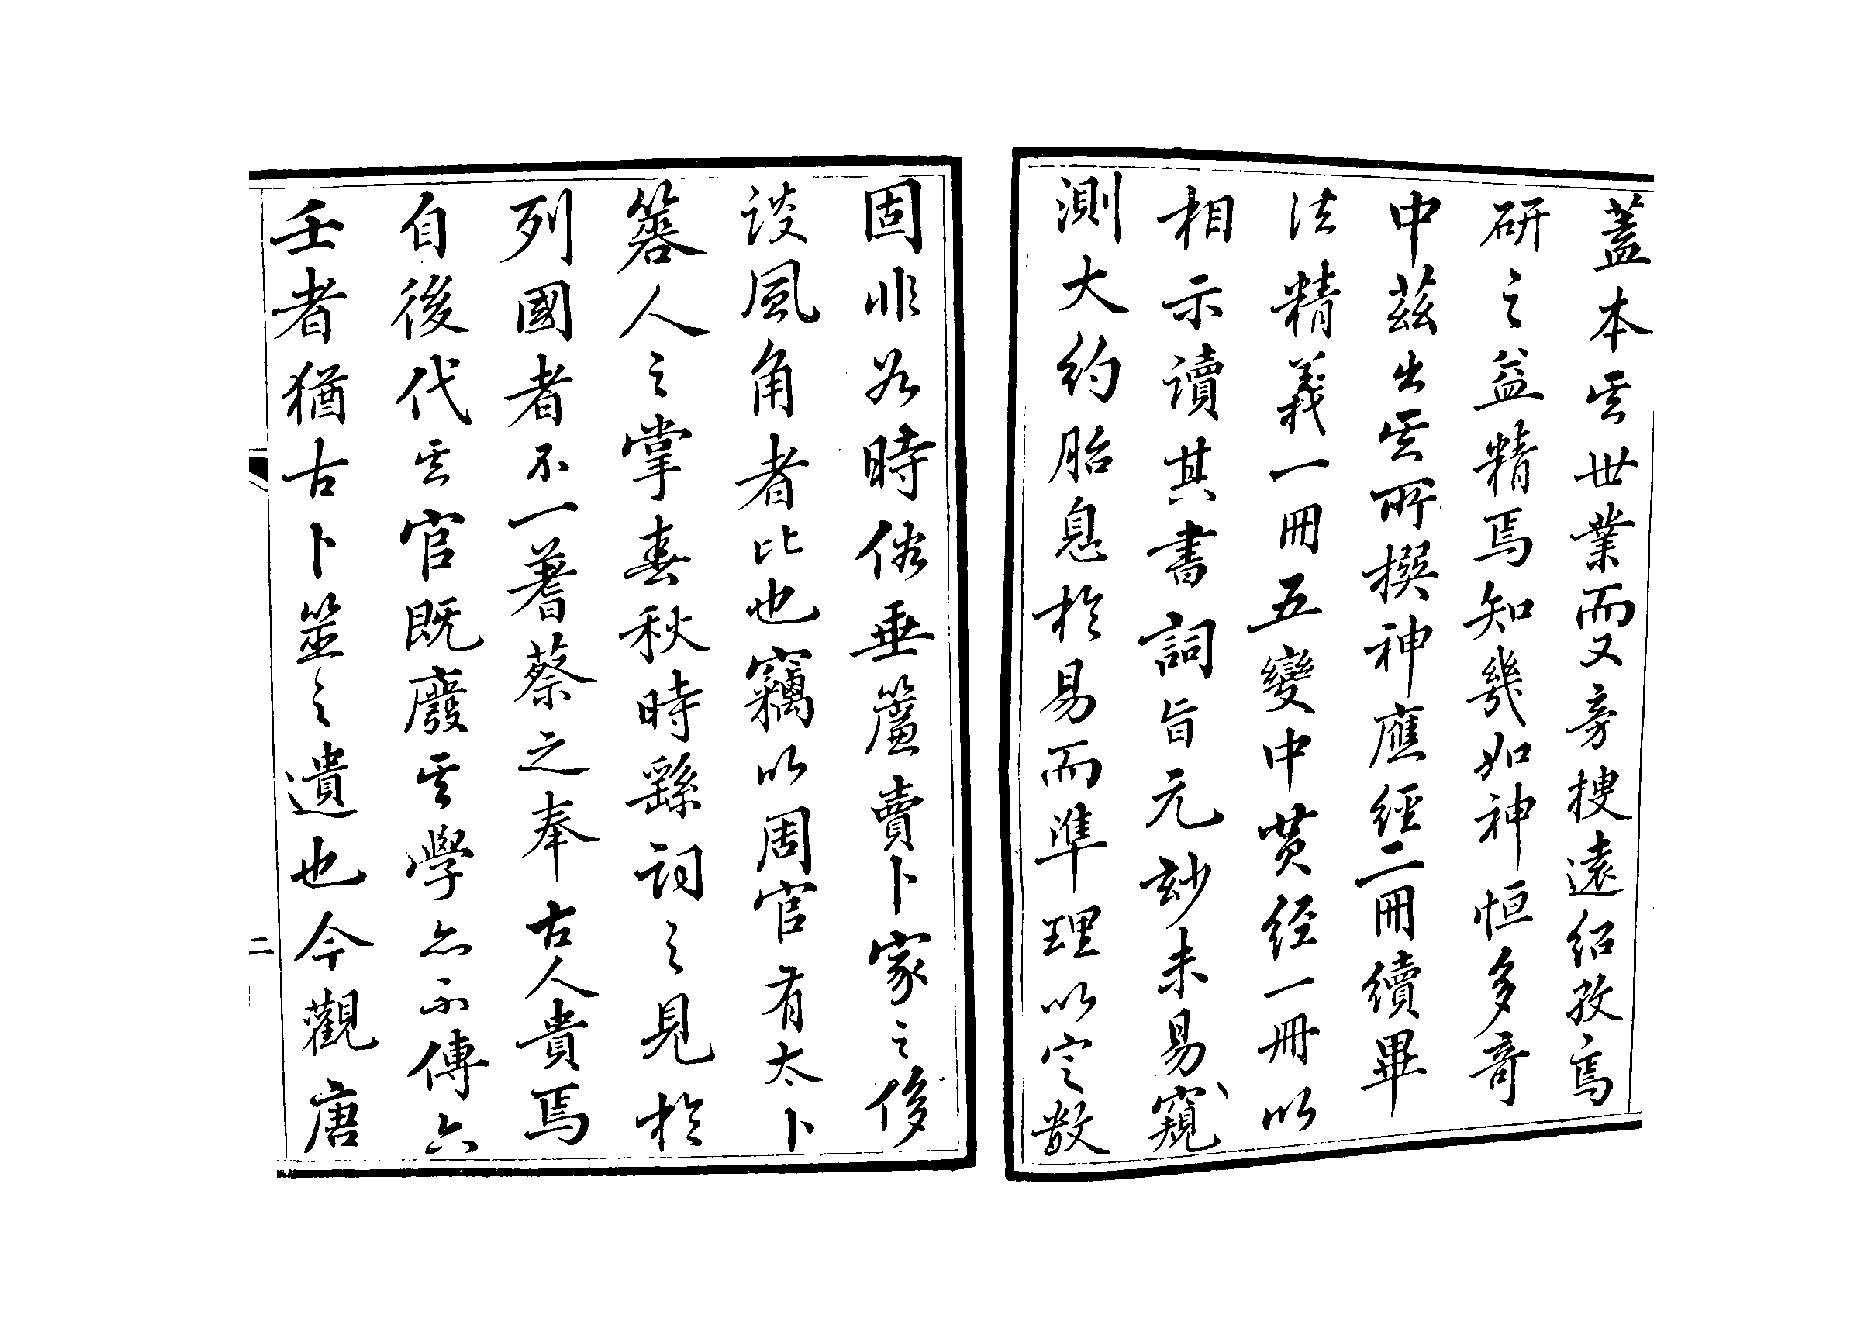 蓋本其世業而又旁搜遠紹孜焉
研之益精焉知幾如神恒多奇
中茲出其所撰神應經二冊續畢
法精義一冊五變中黃經一冊以
相示讀其書詞旨元妙未易窺
測大約胎息於易而準理以定數
固非若時俗垂簾賣卜家之侈
談風角者比也竊以周官有太卜
簭人之掌春秋時繇詞之見於
列國者不一蓍蔡之奉古人貴焉
自後代其官既廢其學亦不傳六
壬者猶古卜筮之遺也今觀唐
二